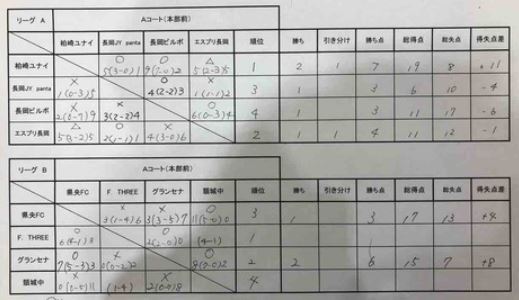 リーグ A Aコート(本部前)
柏崎ユナイ 長岡JY panta 長岡ビルボ エスプリ長岡 順位 勝ち 引き分け 勝ち点 総得点 総失点 得失点差
柏崎ユナイ ○ 5(3-0)1 ○ 9(7-0)2 △ 5(2-3)5 1 2 1 7 19 8 +11
長岡JY panta × 1(0-3)5 ○ 4(2-2)3 × 1(1-1)2 3 1 3 6 10 -4
長岡ビルボ × 2(0-7)9 × 3(2-2)4 ○ 6(0-3)4 4 1 3 11 17 -6
エスプリ長岡 △ 5(3-2)5 ○ 2(1-1)1 × 4(3-0)6 2 1 1 4 11 12 -1
リーグ B Aコート(本部前)
県央FC F. THREE グランセナ 頸城中 順位 勝ち 引き分け 勝ち点 総得点 総失点 得失点差
県央FC × 3(1-4)6 × 3(3-5)7 ○ 11(5-0)0 3 1 3 17 13 +4
F. THREE ○ 6(4-1)3 ○ (4-1) 1
グランセナ ○ 7(5-3)3 × 0(0-2)2 ○ 8(7-0)2 2 2 6 15 7 +8
頸城中 × 0(0-5)11 (1-4) × 4